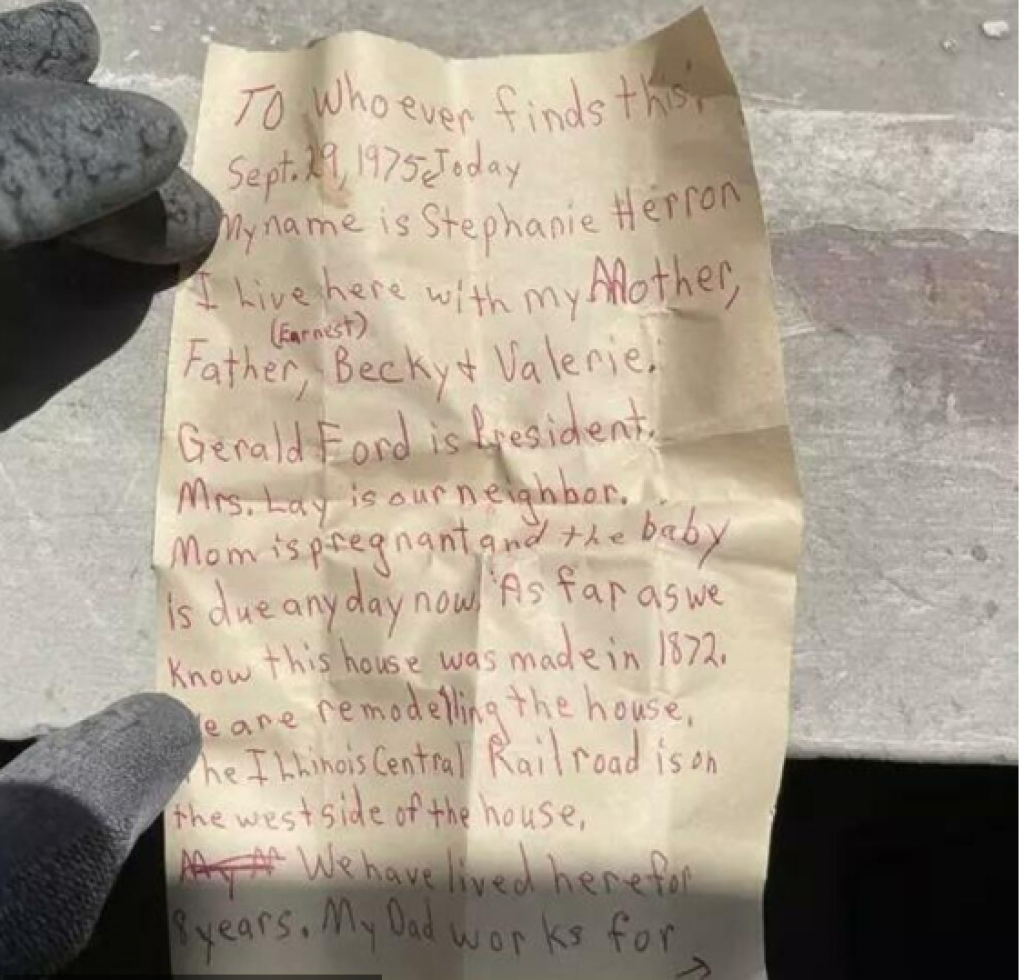 TO Whoever finds this,
Sept. 29, 1975, Today
My name is Stephanie Herron
I Live here with my Mother,
(Earnest)
Father, Becky & Valerie.
Gerald Ford is President.
Mrs. Lay is our neighbor.
Mom is pregnant and the baby
is due any day now. As far as we
Know this house was made in 1872.
We are remodelling the house.
The Illinois Central Railroad is on
the west side of the house.
We have lived here for
8 years. My Dad works for
→